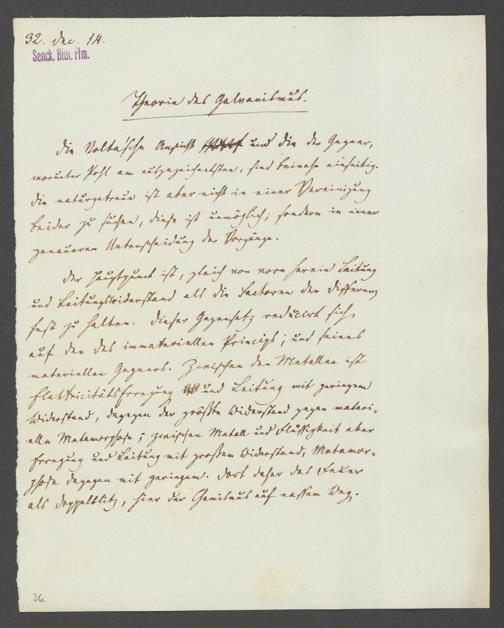 32. Dec. 14.
Senck. Bibl. Ffm.
Theorie des Galvanismus.
Die Volta'sche Ansicht und die der Gegner,
worunter Pohl am ausgezeichnetsten, sind beinahe einseitig.
die naturgetreue ist aber nicht in einer Vereinigung
beider zu suchen, diese ist unmöglich; sondern in einer
genaueren Unterscheidung der Vorgänge.
Der Hauptpunct ist, gleich von vorn herein Leitung
und Leitungswiderstand als die Factoren der Differenz
fest zu halten. Dieser Gegensatz reducirt sich
auf den des immateriellen Princips, und seines
materiellen Gegners. Zwischen den Metallen ist
Elektricitätserregung und Leitung mit geringem
Widerstand, dagegen der größte Widerstand gegen materi-
elle Metamorphose; zwischen Metall und Flüssigkeit aber
Erregung und Leitung mit großem Widerstand, Metamor-
phose dagegen mit geringem. Dort daher das Feuer
als Doppelblitz, hier der Chemismus auf nassem Weg.
36